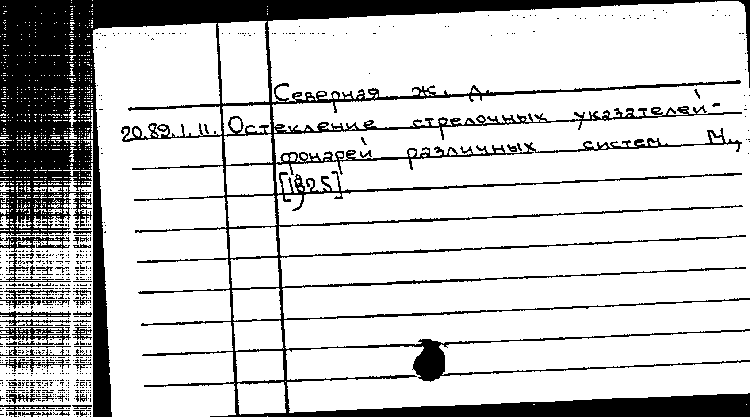 Северная ж. д.
20.89.1.11. Остекление стрелочных указателей-
фонарей различных систем. М.,
[1925].